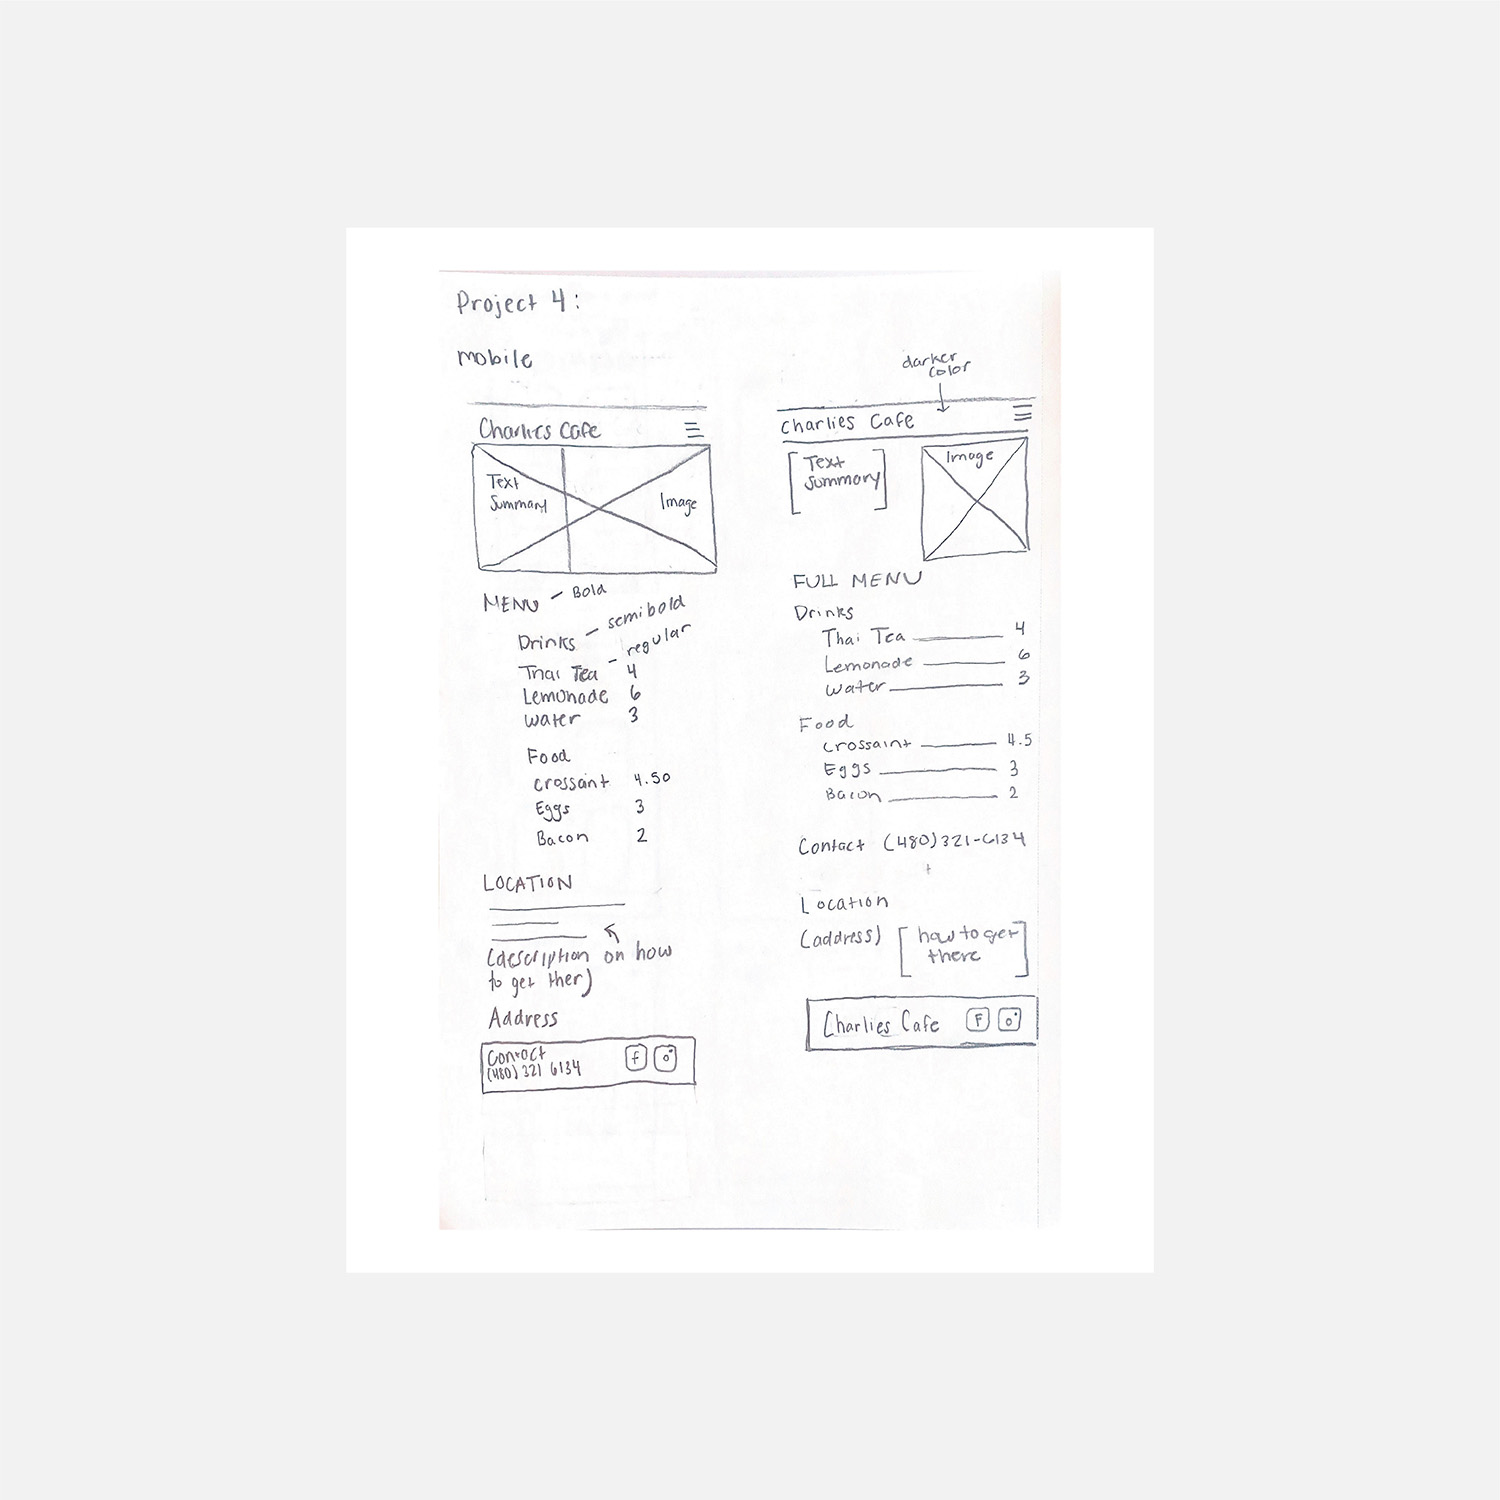 Project 4:
mobile
Charlies Cafe
Text
Summary
Image
MENU – Bold
Drinks – semibold
Thai Tea – regular
4
Lemonade 6
water 3
Food
crossaint 4.50
Eggs 3
Bacon 2
LOCATION
(description on how
to get ther)
Address
Contact
(480) 321 6134
f
darker
color
Charlies Cafe
Text
Summary
Image
FULL MENU
Drinks
Thai Tea 4
Lemonade 6
water 3
Food
crossaint 4.5
Eggs 3
Bacon 2
Contact (480)321-6134
Location
(address)
how to get
there
Charlies Cafe
F